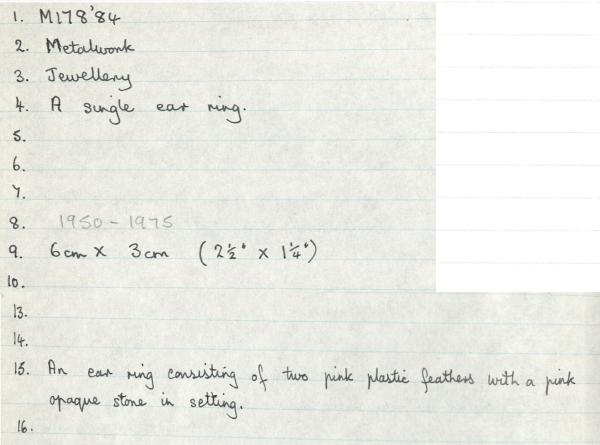 1. M178'84
2. Metalwork
3. Jewellery
4. A single ear ring.
5.
6.
7.
8. 1950 - 1975
9. 6cm x 3cm (2½" x 1¼")
10.
13.
14.
15. An ear ring consisting of two pink plastic feathers with a pink
opaque stone in setting.
16.